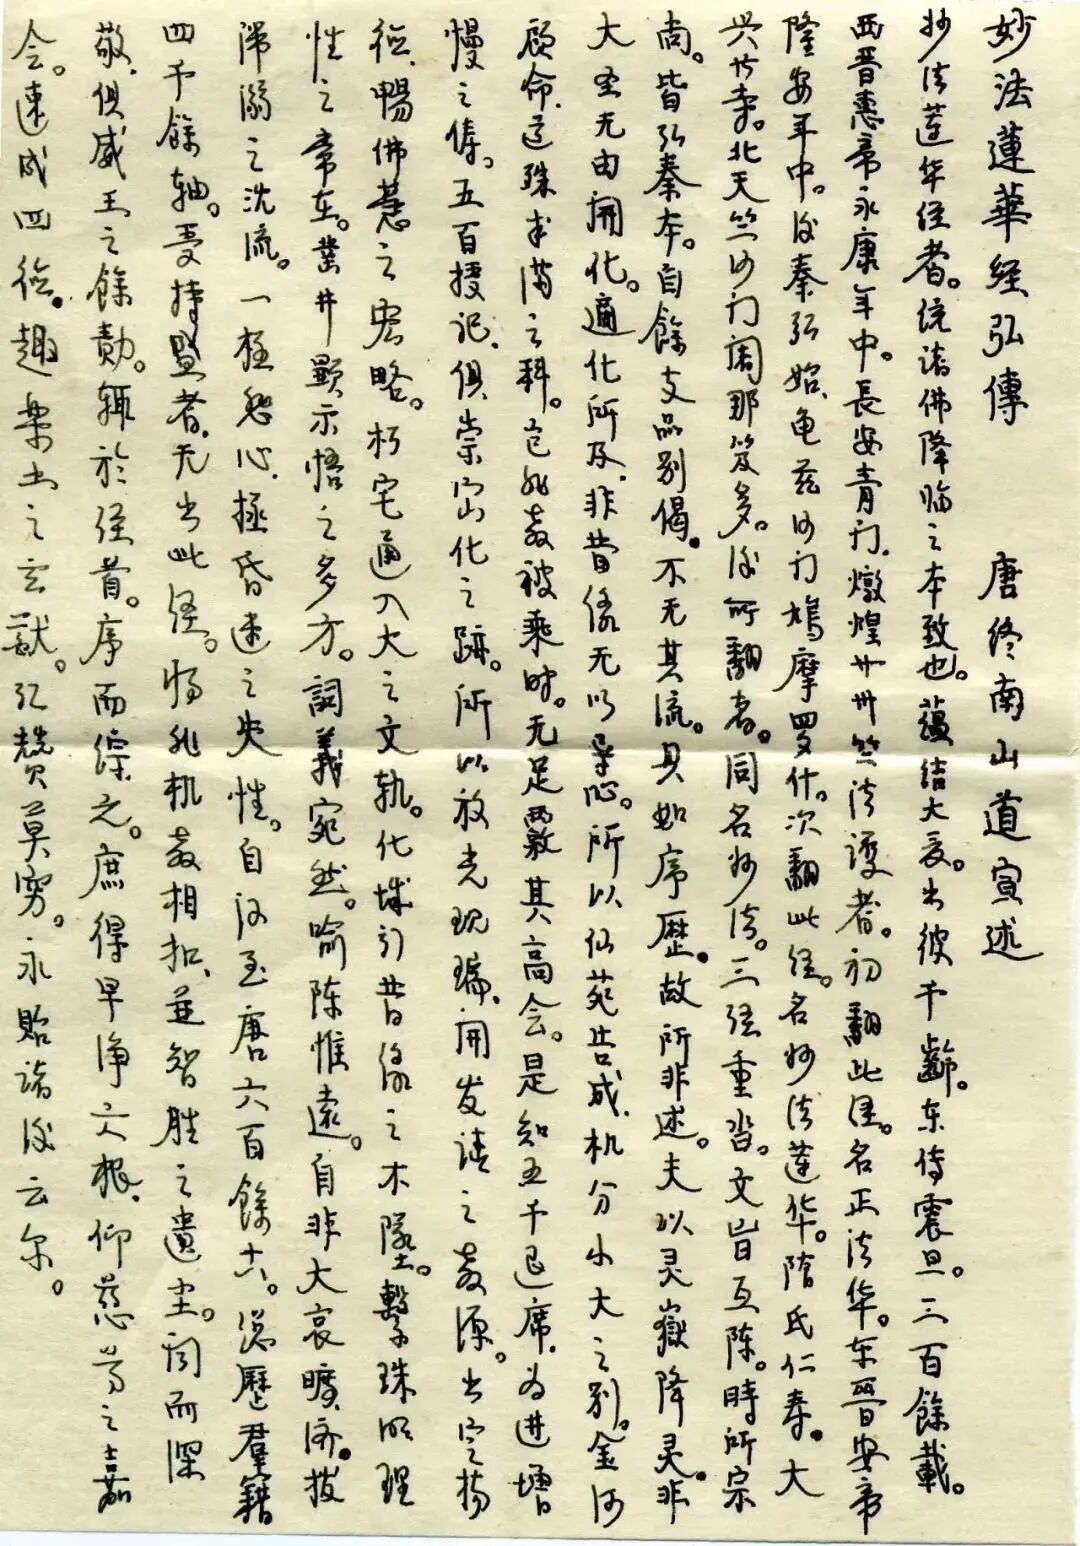 妙法蓮華经弘傳 唐终南山道宣述
妙法莲华经者。统诸佛降临之本致也。蕴结大夏。出彼千齡。东传震旦。三百餘載。
西晋惠帝永康年中。長安青门、燉煌艹卅竺法護者。初翻此经。名正法华。东晋安帝
隆安年中。後秦弘始、龟兹沙门鳩摩罗什。次翻此经。名妙法莲华。隋氏仁寿。大
兴善寺。北天竺沙门阇那笈多。後所翻者。同名妙法。三经重沓。文旨互陈。時所宗
尚。皆弘秦本。自餘支品别偈。不无其流。具如序歷。故所非述。夫以灵嶽降灵。非
大圣无由開化。適化所及、非昔缘无以导心。所以仙苑告成、机分小大之别。金河
顾命、道殊半满之科。岂非教被乘時。无足覈其高会。是知五千退席、为进增
慢之俦。五百授记、俱崇密化之跡。所以放光现瑞、開发请之教源。出定扬
德、暢佛慧之宏略。朽宅通入大之文轨。化城引昔缘之不墜。繫珠明理
性之常在。鑿井顯示悟之多方。詞義宛然。喻陈惟遠。自非大哀曠济。拔
滞溺之沈流。一极悲心、拯昏迷之失性。自汉至唐六百餘六。总歷羣籍
四千餘轴。受持盛者、无出此经。将非机教相扣、並智胜之遺尘。闻而深
敬、俱威王之餘勣。輒於经首。序而综之。庶得早净六根、仰慈尊之嘉
会。速成四德。趣樂土之玄猷。弘赞莫穷。永贻诸後云尔。